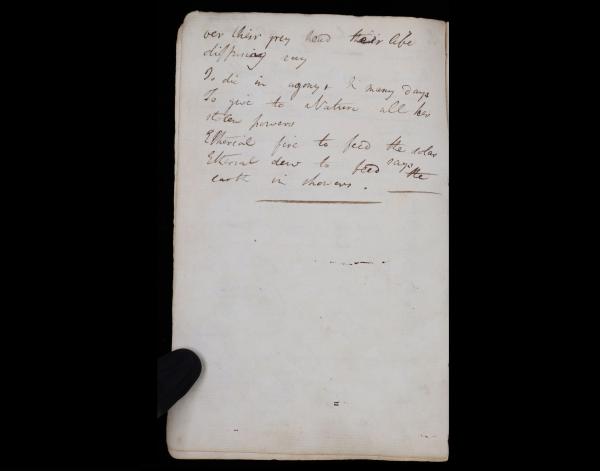 ver their prey their life
diffusing ray
To die in agony, & many days
To give to Nature all her
stolen powers
Etherial fire to feed the solar
Etherial dew to feed rays the
earth in showers.